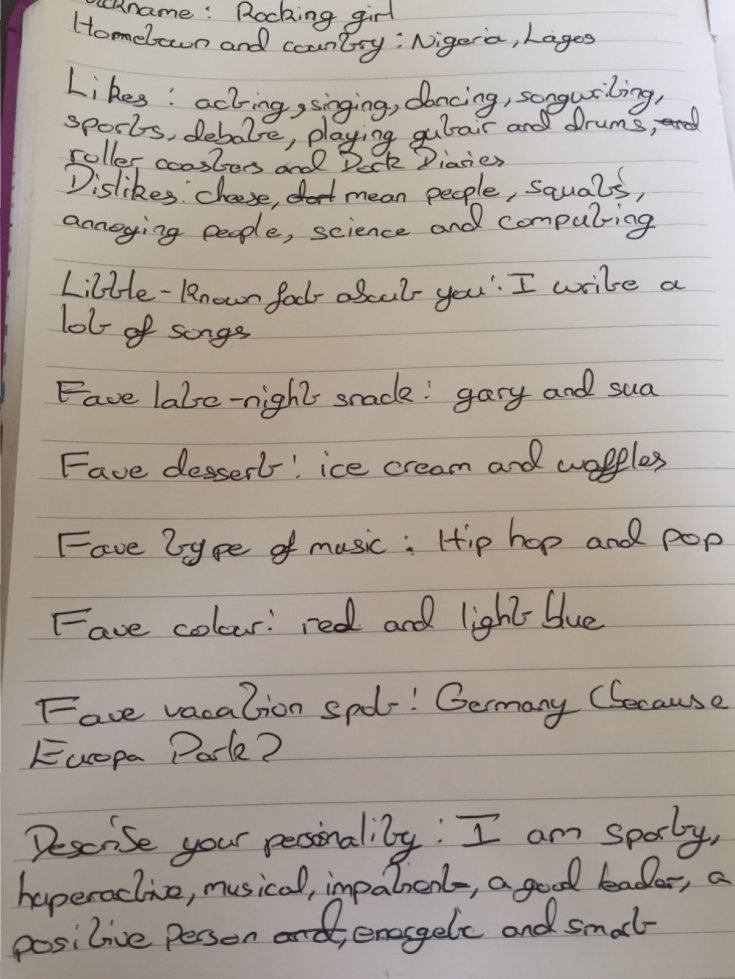 ickname: Rocking girl
Hometown and country: Nigeria, Lagos
Likes: acting, singing, dancing, songwriting,
sports, debate, playing guitair and drums, and
roller coasters and Dork Diaries
Dislikes: cheese, dont mean people, squats,
annoying people, science and computing
Little-known fact about you: I write a
lot of songs
Fave late-night snack: gary and sua
Fave dessert: ice cream and waffles
Fave type of music: Hip hop and pop
Fave colour: red and light blue
Fave vacation spot: Germany (because
Europa Park)
Describe your personality: I am sporty,
hyperactive, musical, impatient, a good leader, a
positive person and, energetic and smart